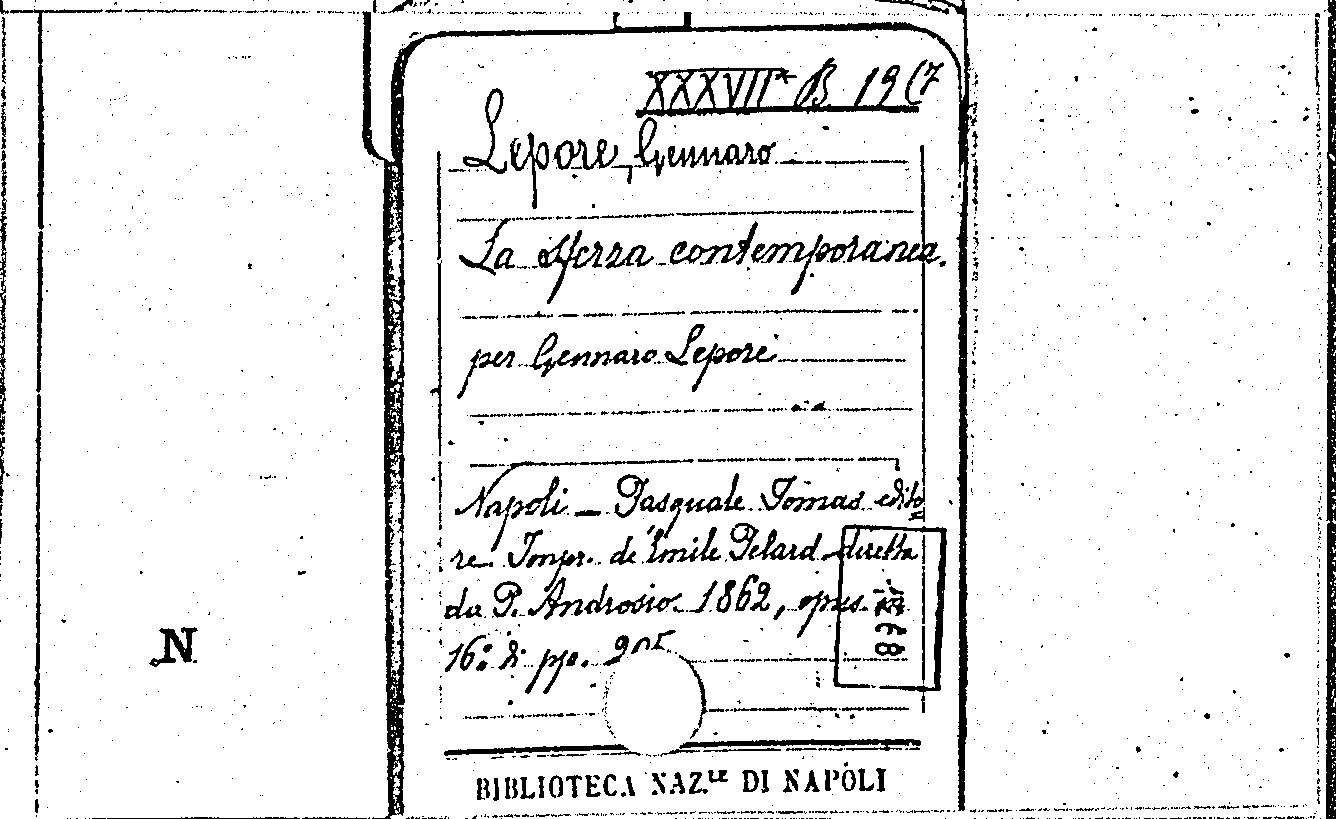 XXXVII* B. 19 (7
Lepore, Gennaro
La Sferza contemporanea.
per Gennaro Lepore
Napoli — Pasquale Tomas edito
re. Impr. de Emile Pelard diretta
da P. Androsio. 1862, opus. in
16.º di pp. 205
1968
N
BIBLIOTECA NAZ.LE DI NAPOLI